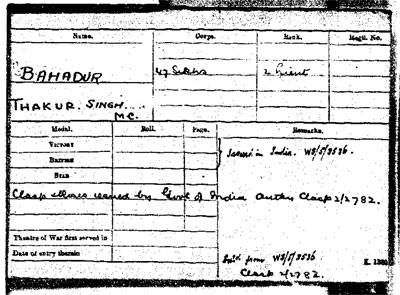 Name. Corps. Rank. Regtl. No.
BAHADUR 47 Sikhs 2 Lieut
THAKUR. SINGH....
M.C.
Medal. Roll. Page. Remarks.
VICTORY
BRITISH Issued in India. WS/5/3536.
STAR
Clasp issued by Govt of India Clasp 2/2782.
Theatre of War first served in
Date of entry therein from WS/5/3536
K. 1380
Clasp 2/2782.